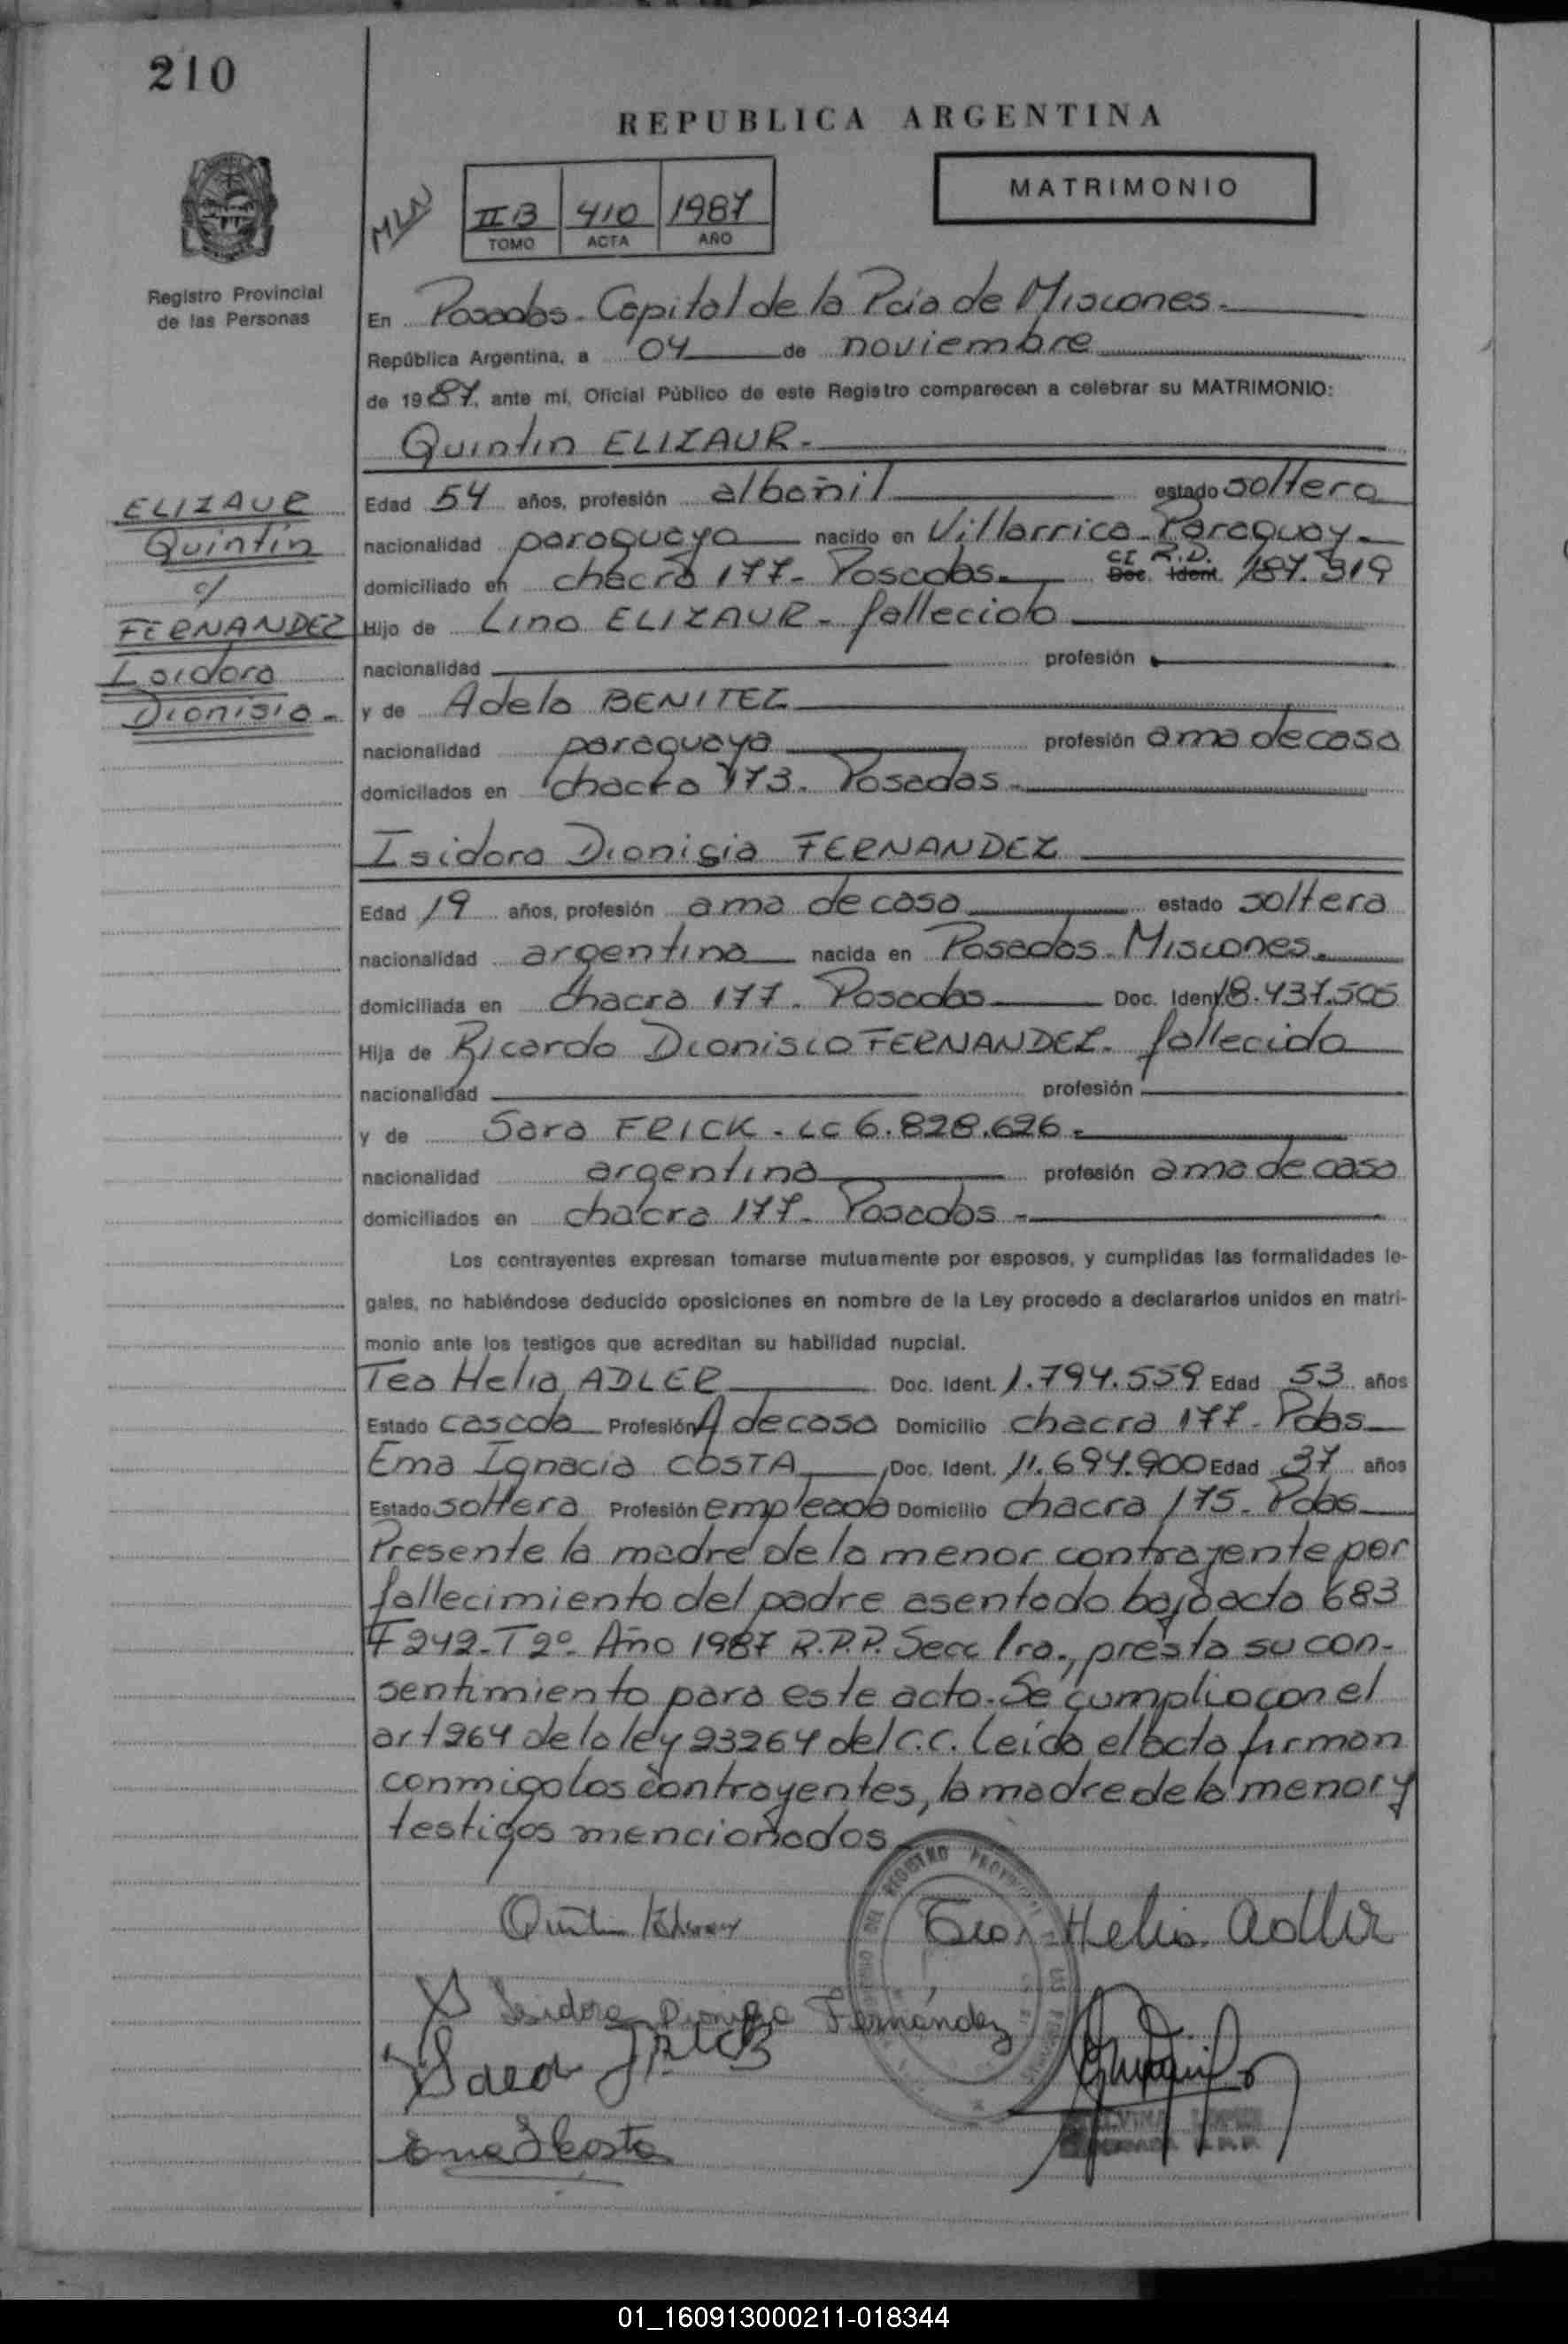 210
REPUBLICA ARGENTINA
MATRIMONIO
MLN
II B 410 1987
TOMO ACTA AÑO
Registro Provincial
de las Personas
En Posadas - Capital de la Pcia de Misiones.-
República Argentina, a 04 de noviembre
de 1987, ante mí, Oficial Público de este Registro comparecen a celebrar su MATRIMONIO:
Quintin ELIZAUR.-
ELIZAUR
Quintín
c/
FERNANDEZ
Isidora
Dionisia.-
Edad 54 años, profesión albañil estado soltero
nacionalidad paraguaya nacido en Villarrica - Paraguay.-
domiciliado en chacra 177 - Posadas.- Doc. Ident. CI R.D. 187.319
Hijo de Lino ELIZAUR - fallecido
nacionalidad profesión
y de Adela BENITEZ
nacionalidad paraguaya profesión ama de casa
domicilados en chacra 173 - Posadas.-
Isidora Dionisia FERNANDEZ
Edad 19 años, profesión ama de casa estado soltera
nacionalidad argentina nacida en Posadas - Misiones.
domiciliada en chacra 177 - Posadas Doc. Ident. 18.437.505
Hija de Ricardo Dionisio FERNANDEZ - fallecido
nacionalidad profesión
y de Sara FRICK - LC 6.828.626.-
nacionalidad argentina profesión ama de casa
domiciliados en chacra 177 - Posadas -
Los contrayentes expresan tomarse mutuamente por esposos, y cumplidas las formalidades le-
gales, no habiéndose deducido oposiciones en nombre de la Ley procedo a declararlos unidos en matri-
monio ante los testigos que acreditan su habilidad nupcial.
Tea Helia ADLER Doc. Ident. 1.794.559 Edad 53 años
Estado casada Profesión A de casa Domicilio chacra 177 - Pdas
Ema Ignacia COSTA Doc. Ident. 11.694.900 Edad 37 años
Estado soltera Profesión empleada Domicilio chacra 175 - Pdas
Presente la madre de la menor contrayente por
fallecimiento del padre asentado bajo acta 683
F 242 - T 2º - Año 1987 R.P.P. Secc 1ra., presta su con-
sentimiento para este acto. Se cumplio con el
art 264 de la ley 23264 del C.C. Leída el acta firman
conmigo los contrayentes, la madre de la menor y
testigos mencionados.-
Tea Helia Adler
Isidora Dionisia Fernández
Sara Frick
Ema I Costa
01_160913000211-018344